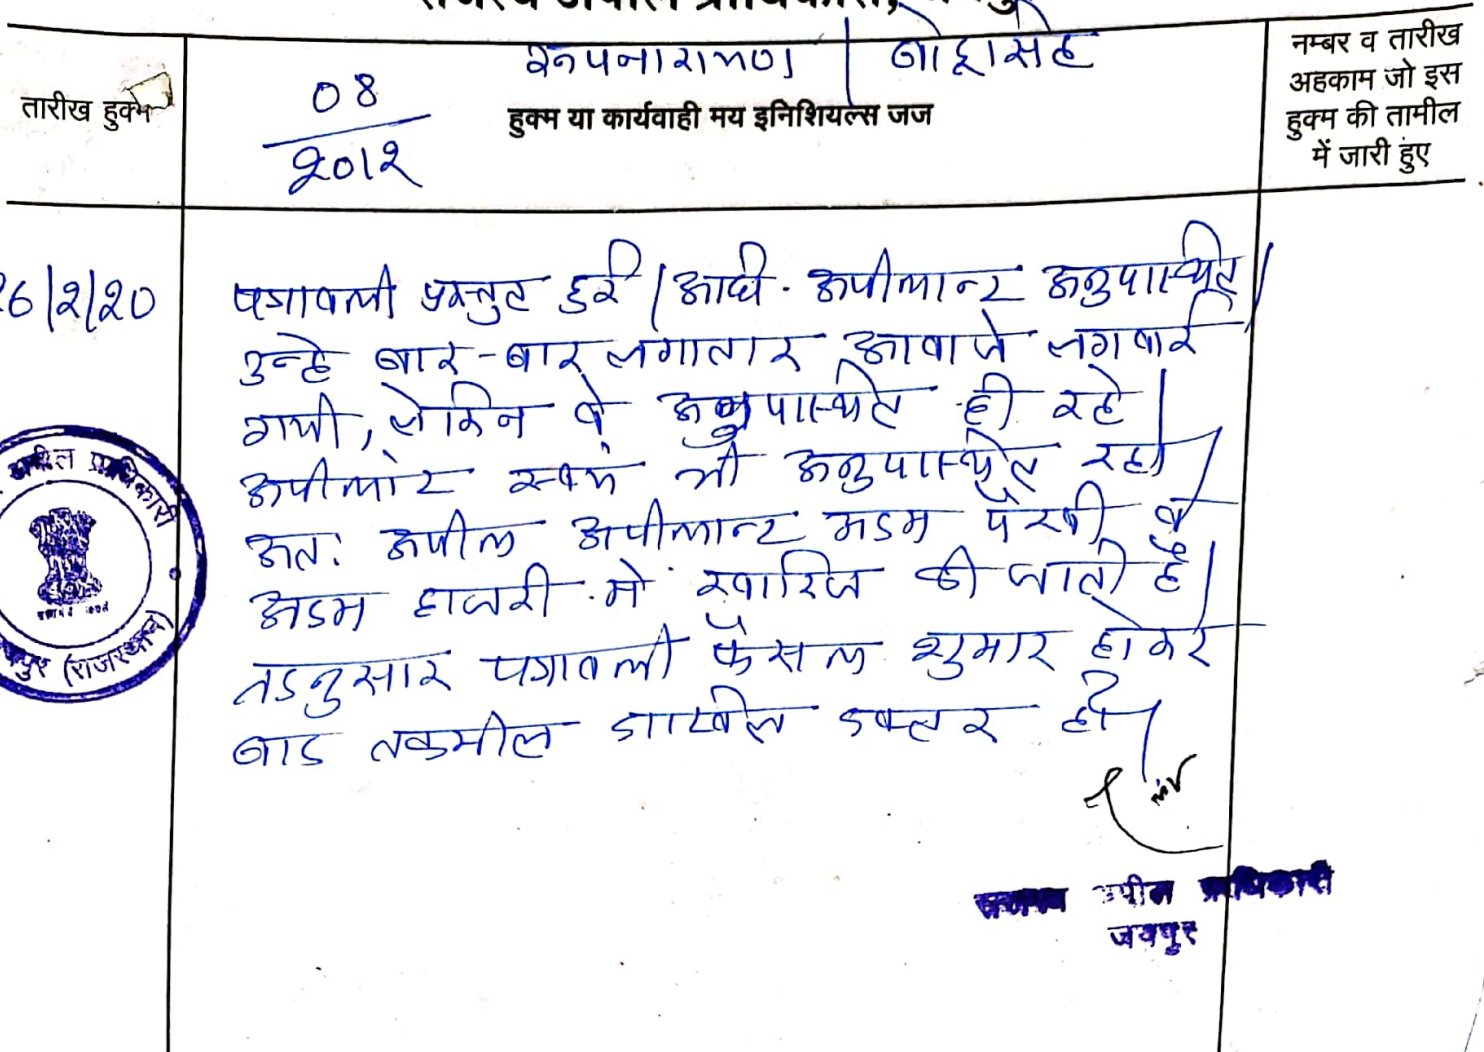 राजस्व अपील प्राधिकारी,
रूपनारायण / बोदूसिंह
तारीख हुक्म
08
2012
हुक्म या कार्यवाही मय इनिशियल्स जज
नम्बर व तारीख
अहकाम जो इस
हुक्म की तामील
में जारी हुए
26/2/20
पत्रावली प्रस्तुत हुई। अधि. अपीलान्ट अनुपस्थित।
उन्हे बार-बार लगातार आवाजे लगवाई
गयी, लेकिन वे अनुपस्थित ही रहे।
अपीलांट स्वयं भी अनुपस्थित रहा।
अतः अपील अपीलान्ट अदम पैरवी व
अदम हाजरी में खारिज की जाती है।
तदनुसार पत्रावली फैसल शुमार होकर
बाद तकमील दाखिल दफ्तर हो।
अपील प्राधिकारी
(राजस्थान)
राजस्व अपील प्राधिकारी
जयपुर